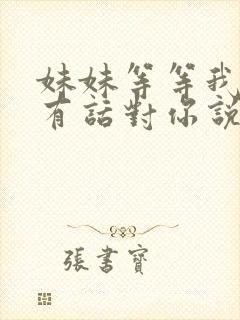 妹妹等等我
有話對你說
張書寶